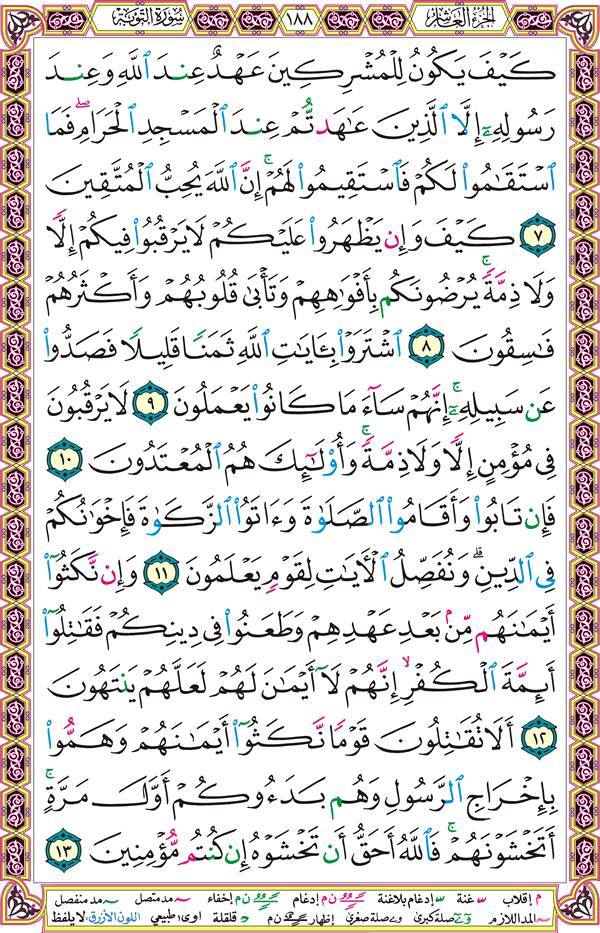 الجزء العاشر ١٨٨ سورة التوبة
كَيْفَ يَكُونُ لِلْمُشْرِكِينَ عَهْدٌ عِندَ ٱللَّهِ وَعِندَ
رَسُولِهِۦٓ إِلَّا ٱلَّذِينَ عَٰهَدتُّمْ عِندَ ٱلْمَسْجِدِ ٱلْحَرَامِ ۖ فَمَا
ٱسْتَقَٰمُوا۟ لَكُمْ فَٱسْتَقِيمُوا۟ لَهُمْ ۚ إِنَّ ٱللَّهَ يُحِبُّ ٱلْمُتَّقِينَ
٧ كَيْفَ وَإِن يَظْهَرُوا۟ عَلَيْكُمْ لَا يَرْقُبُوا۟ فِيكُمْ إِلًّا
وَلَا ذِمَّةً ۚ يُرْضُونَكُم بِأَفْوَٰهِهِمْ وَتَأْبَىٰ قُلُوبُهُمْ وَأَكْثَرُهُمْ
فَٰسِقُونَ ٨ ٱشْتَرَوْا۟ بِـَٔايَٰتِ ٱللَّهِ ثَمَنًا قَلِيلًا فَصَدُّوا۟
عَن سَبِيلِهِۦٓ ۚ إِنَّهُمْ سَآءَ مَا كَانُوا۟ يَعْمَلُونَ ٩ لَا يَرْقُبُونَ
فِى مُؤْمِنٍ إِلًّا وَلَا ذِمَّةً ۚ وَأُو۟لَٰٓئِكَ هُمُ ٱلْمُعْتَدُونَ ١٠
فَإِن تَابُوا۟ وَأَقَامُوا۟ ٱلصَّلَوٰةَ وَءَاتَوُا۟ ٱلزَّكَوٰةَ فَإِخْوَٰنُكُمْ
فِى ٱلدِّينِ ۗ وَنُفَصِّلُ ٱلْءَايَٰتِ لِقَوْمٍ يَعْلَمُونَ ١١ وَإِن نَّكَثُوٓا۟
أَيْمَٰنَهُم مِّنۢ بَعْدِ عَهْدِهِمْ وَطَعَنُوا۟ فِى دِينِكُمْ فَقَٰتِلُوٓا۟
أَئِمَّةَ ٱلْكُفْرِ ۙ إِنَّهُمْ لَآ أَيْمَٰنَ لَهُمْ لَعَلَّهُمْ يَنتَهُونَ
١٢ أَلَا تُقَٰتِلُونَ قَوْمًا نَّكَثُوٓا۟ أَيْمَٰنَهُمْ وَهَمُّوا۟
بِإِخْرَاجِ ٱلرَّسُولِ وَهُم بَدَءُوكُمْ أَوَّلَ مَرَّةٍ ۚ
أَتَخْشَوْنَهُمْ ۚ فَٱللَّهُ أَحَقُّ أَن تَخْشَوْهُ إِن كُنتُم مُّؤْمِنِينَ ١٣
م إقلاب غنة إدغام بلاغنة ن م إدغام إخفاء مد متصل مد منفصل
المد اللازم صلة كبرى صلة صغرى إظهار ن م قلقلة اوى؛ طبيعي اللون الأزرق؛ لا يلفظ